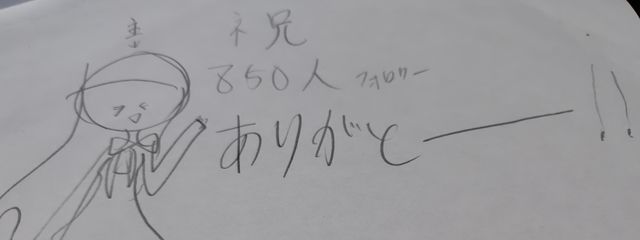 祝
850人 フォロワー
ありがとー!!